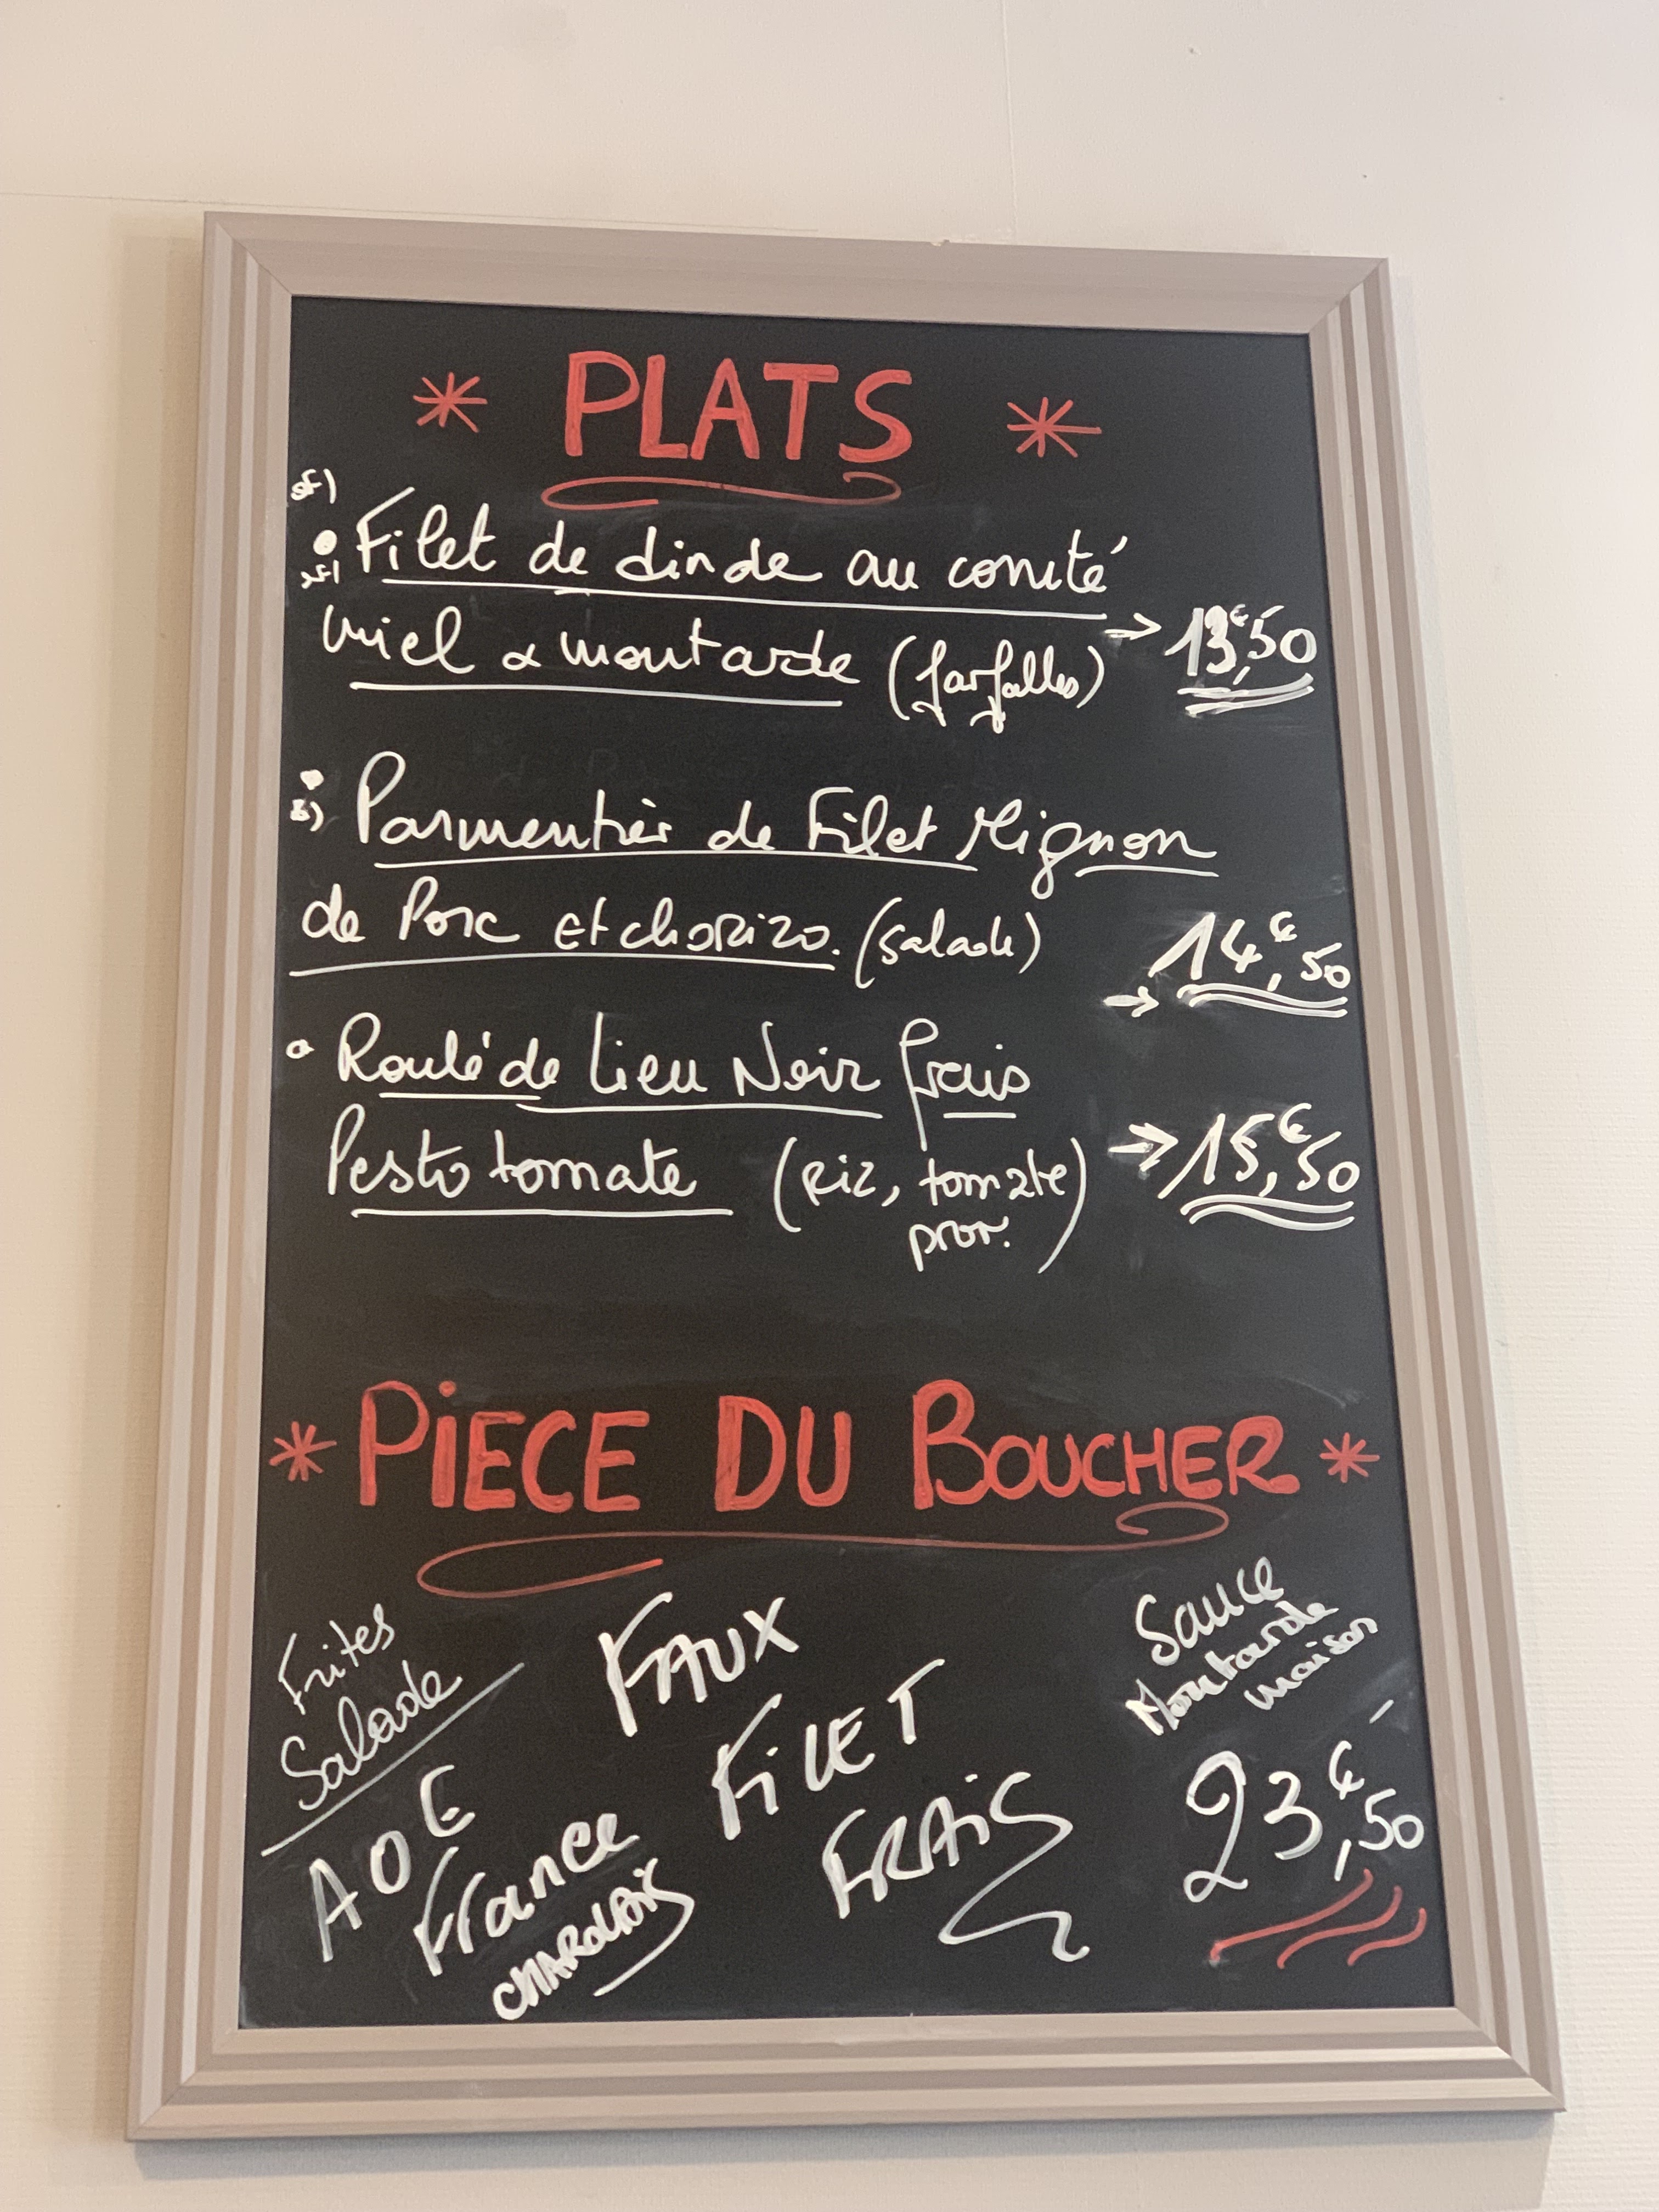 * PLATS *
• Filet de dinde au comté
miel & moutarde (farfalles) → 13€,50
• Parmentier de Filet Mignon
de Porc et chorizo. (salade)
→ 14€,50
• Roulé de Lieu Noir frais
Pesto tomate (riz, tomate → 15€,50
prov.)
* PIECE DU BOUCHER *
Frites
Salade
FAUX
FILET
FRAIS
Sauce
Moutarde
maison
AOE
France
CHAROLAIS
23€,50